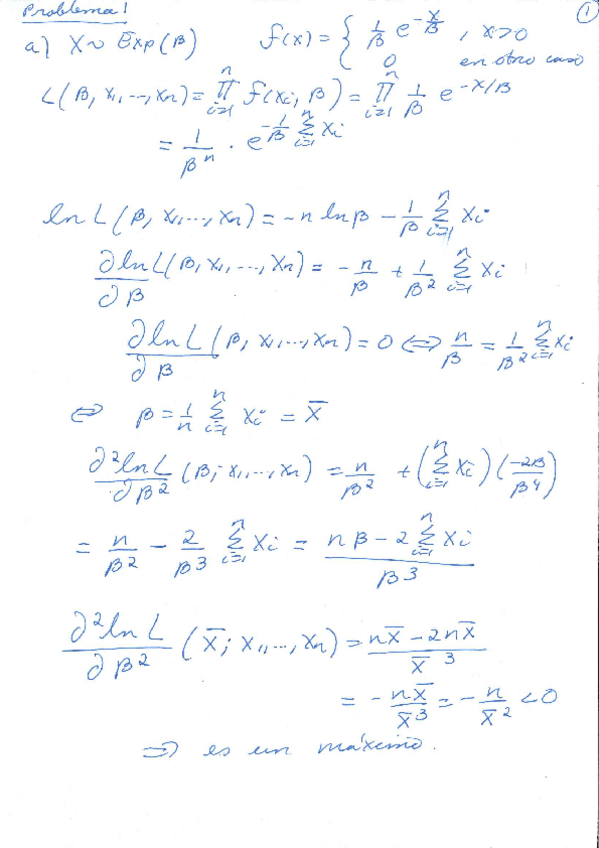 Problema 1 ①
a) X ~ Exp(β) f(x) = { 1/β e^{-x/β}, x>0
0 en otro caso
L(β, x₁, ..., xₙ) = ∏_{i=1}^{n} f(xᵢ, β) = ∏_{i=1}^{n} 1/β e^{-x/β}
= 1/βⁿ · e^{-1/β ∑_{i=1}^{n} xᵢ}
ln L(β, x₁, ..., xₙ) = -n ln β - 1/β ∑_{i=1}^{n} xᵢ
∂ln L/∂β (β, x₁, ..., xₙ) = -n/β + 1/β² ∑_{i=1}^{n} xᵢ
∂ln L/∂β (β, x₁, ..., xₙ) = 0 ⇔ n/β = 1/β² ∑_{i=1}^{n} xᵢ
⇔ β = 1/n ∑_{i=1}^{n} xᵢ = x̄
∂²ln L/∂β² (β; x₁, ..., xₙ) = n/β² + (∑_{i=1}^{n} xᵢ)(-2β/β⁴)
= n/β² - 2/β³ ∑_{i=1}^{n} xᵢ = (nβ - 2∑_{i=1}^{n} xᵢ)/β³
∂²ln L/∂β² (x̄; x₁, ..., xₙ) = (nx̄ - 2nx̄)/x̄³
= -nx̄/x̄³ = -n/x̄² < 0
⇒ es un máximo.